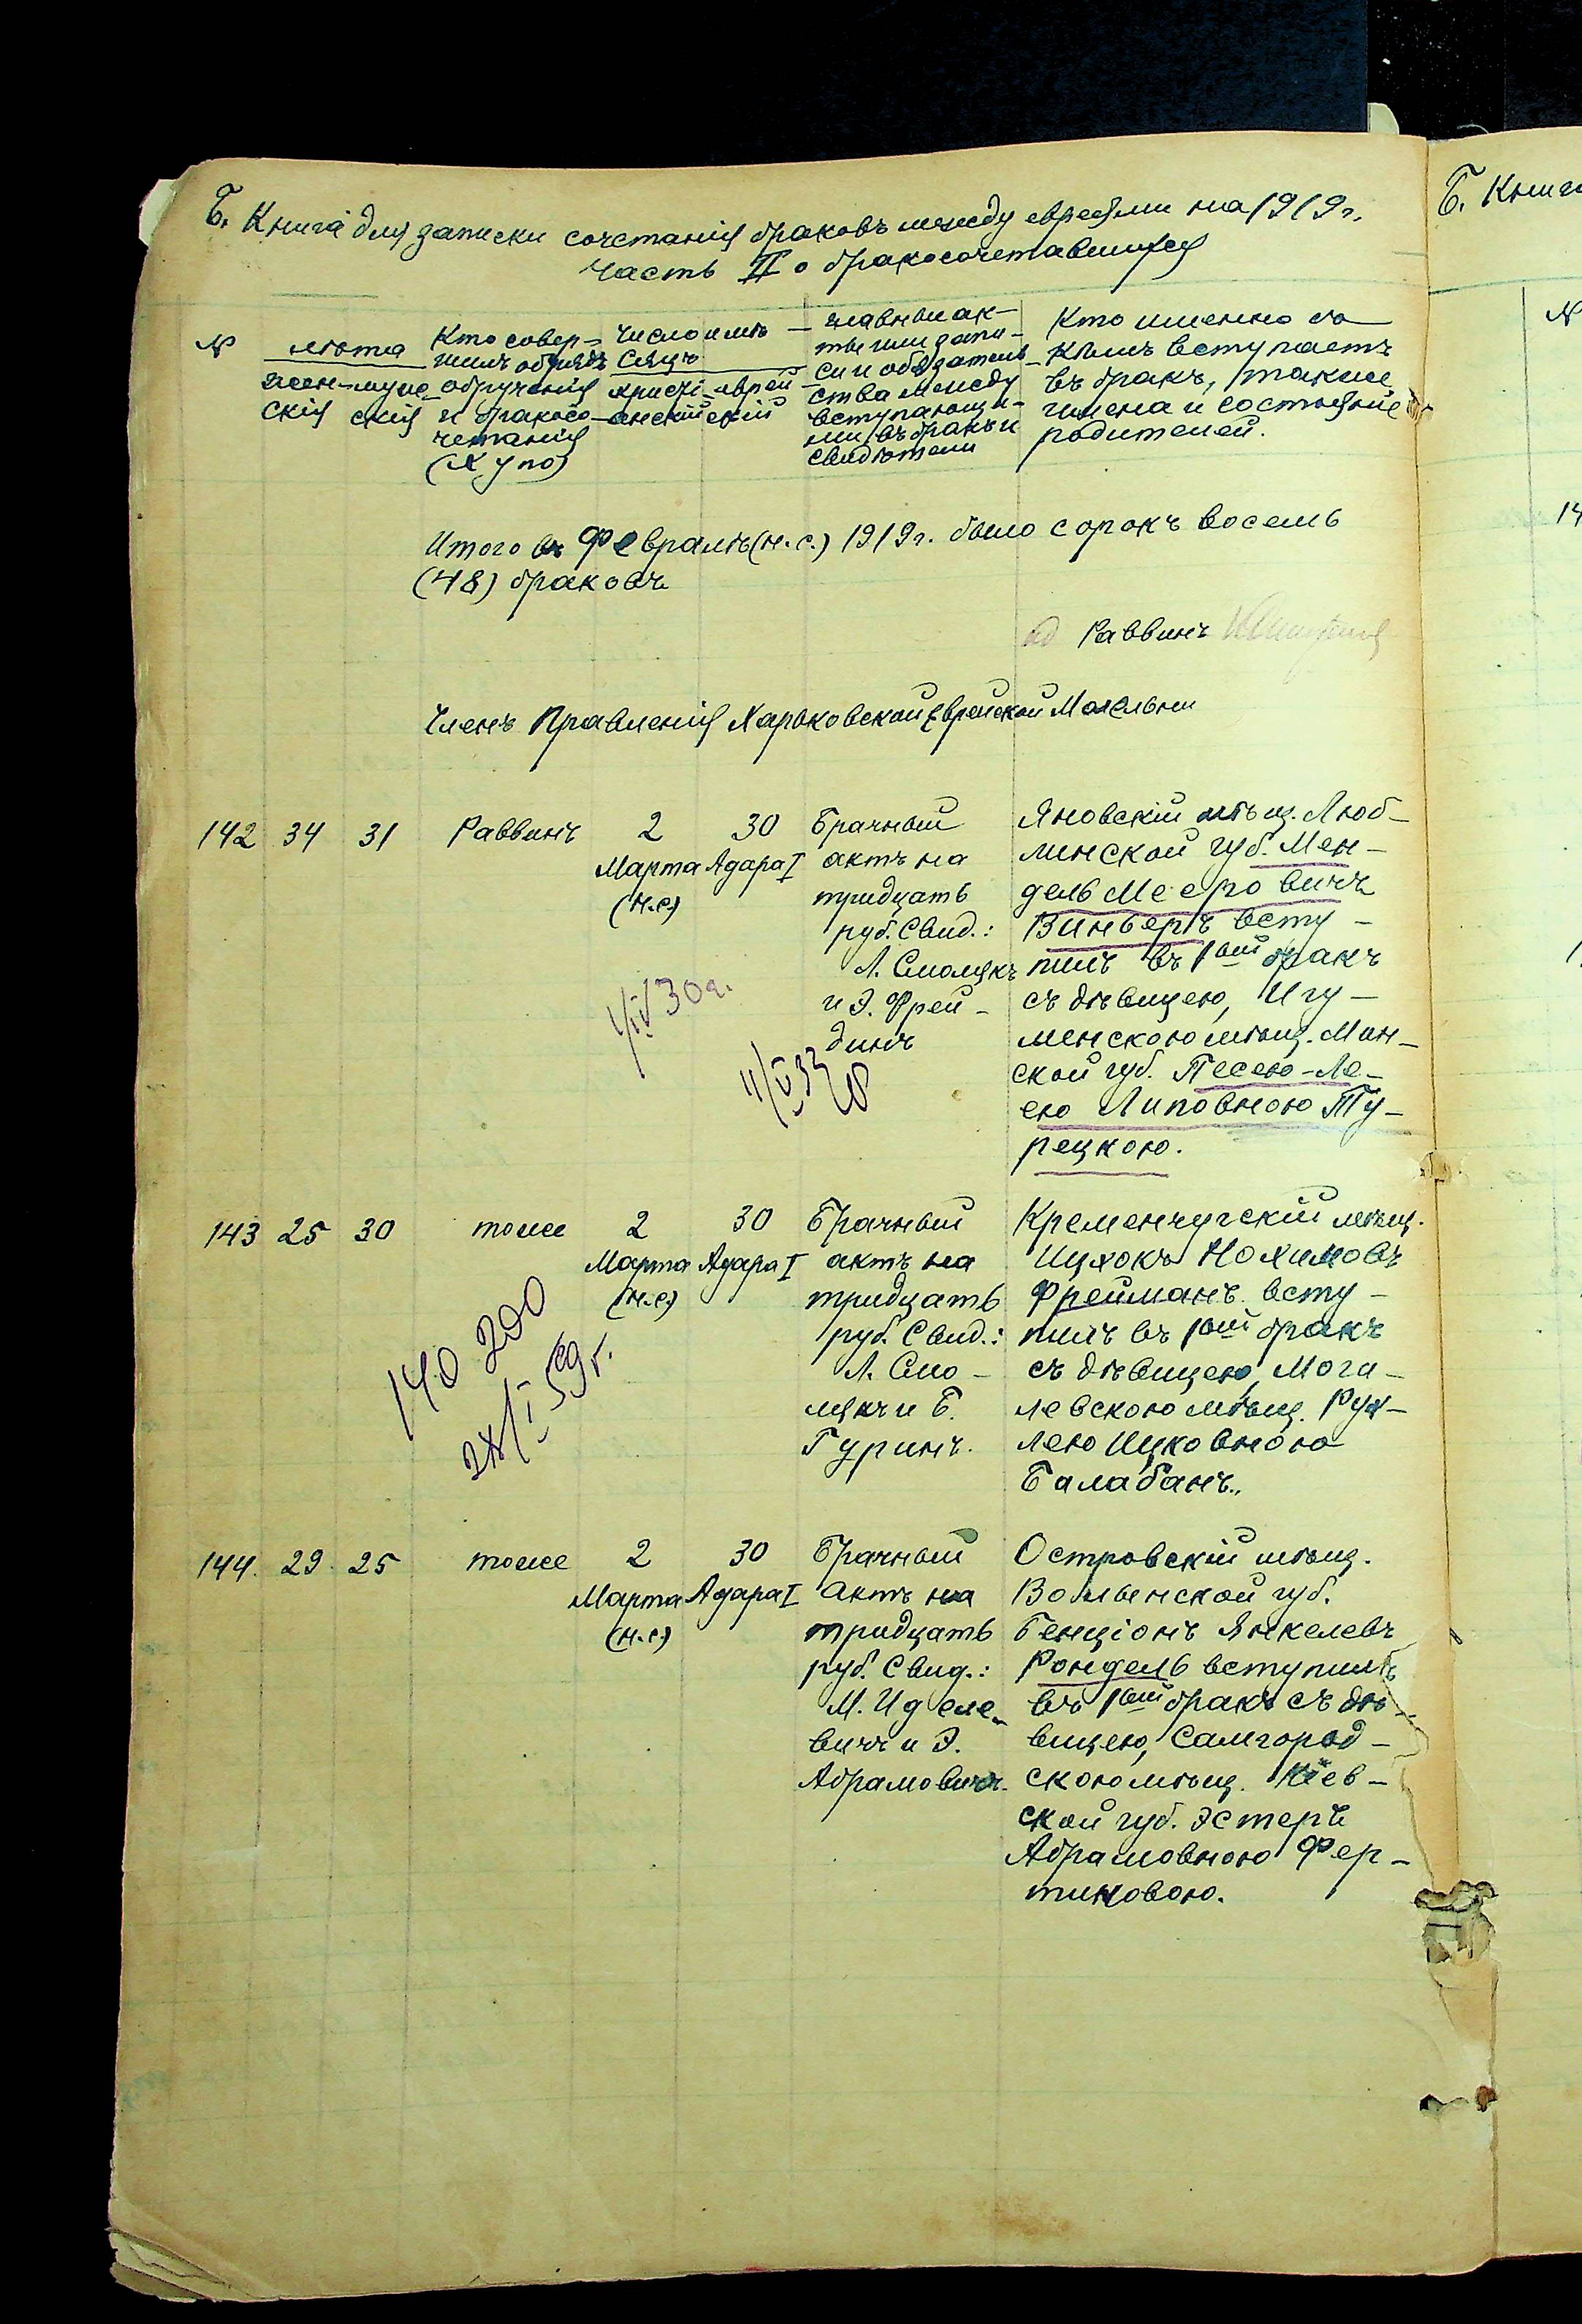 Б. Книга для записки сочетанія браковъ между евреями на 1919 г.
Часть II о бракосочетавшихся
№
лѣта
жен-
скія
муже-
скія
Кто совер-
шилъ обрядъ
обрученія
и бракосо-
четанія
(Хупо)
Число и мѣ-
сяцъ
христі-
анскій
еврей-
скій
Главные ак-
ты или запи-
си и обязатель-
ства между
вступающи-
ми въ бракъ и
свидѣтели
Кто именно съ
кѣмъ вступаетъ
въ бракъ, также
имена и состояніе
родителей.
Итого въ Февралѣ (н.с.) 1919 г. было сорокъ восемь
(48) браковъ
Раввинъ
Членъ Правленія Харьковской Еврейской Молельни
142 34 31 Раввинъ
2
Марта
(н.с.)
30
Адара I
Брачный
актъ на
тридцать
руб. Свид.:
Л. Смолякъ
и Э. Фрей-
динъ
Яновскій мѣщ. Люб-
линской губ. Мен-
дель Мееровичъ
Винверъ всту-
пилъ въ 1ый бракъ
съ дѣвицею, Игу-
менскою мѣщ. Мин-
ской губ. Песею-Ле-
ею Липовною Ту-
рецкою.
1/IV 30 г.
11/V 32
143 25 30 тоже
2
Марта
(н.с.)
30
Адара I
Брачный
актъ на
тридцать
руб. Свид.:
Л. Смо-
лякъ и Б.
Гуринъ.
Кременчугскій мѣщ.
Ицхокъ Нохимовъ
Фрейманъ всту-
пилъ въ 1ый бракъ
съ дѣвицею, Моги-
левскою мѣщ. Рух-
лею Ицковною
Балабанъ.
140 200
I 59 г.
144. 29 25 тоже
2
Марта
(н.с.)
30
Адара I
Брачный
актъ на
тридцать
руб. Свид.:
М. Иделе-
вичъ и Э.
Абрамовичъ.
Островскій мѣщ.
Волынской губ.
Бенціонъ Янкелевъ
Рондель вступилъ
въ 1ый бракъ съ дѣ-
вицею, Самгород-
скою мѣщ. Кіев-
ской губ. Эстеръ
Абрамовною Фер-
тиковою.
Б. Книга
№